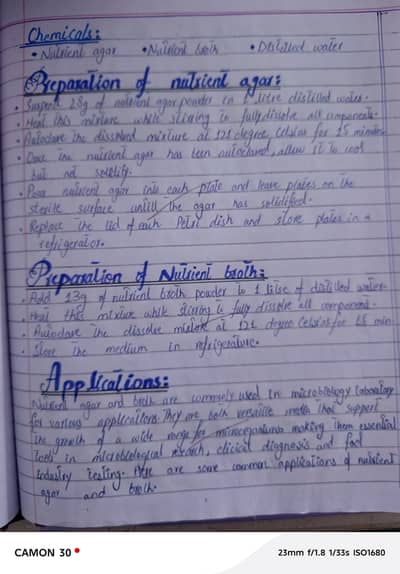 Chemicals:
• Nutrient agar • Nutrient broth • Distilled water
Preparation of nutrient agar:
• Suspend 28g of nutrient agar powder in 1 litre distilled water.
• Heat this mixture while stirring to fully dissolve all components.
• Autoclave the dissolved mixture at 121 degree Celsius for 15 minutes
• Once the nutrient agar has been autoclaved, allow it to cool
but not solidify.
• Pour nutrient agar into each plate and leave plates on the
sterile surface untill the agar has solidified.
• Replace the lid of each Petri dish and store plates in a
refrigerator.
Preparation of Nutrient broth:
• Add 13g of nutrient broth powder to 1 litre of distilled water.
• Heat this mixture while stirring to fully dissolve all component.
• Autoclave the dissolve mixture at 121 degree Celsius for 15 min
• Store the medium in refrigerature.
Applications:
Nutrient agar and broth are commonly used in microbiology laboratory
for various applications. They are both versatile media that support
the growth of a wide range for microorganisms making them essential
tools in microbiological research, clinical diagnosis and food
industry testing. Here are some common applications of nutrient
agar and broth.
CAMON 30
23mm f/1.8 1/33s ISO1680